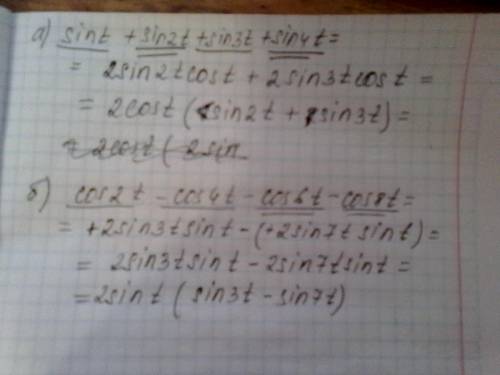 а) sint + sin2t + sin3t + sin4t =
= 2sin2tcost + 2sin3tcost =
= 2cost ( sin2t + sin3t) =
= 2cost ( 2sin
б) cos2t - cos4t - cos6t - cos8t =
= +2sin3tsint - (+2sin7t sint) =
= 2sin3tsint - 2sin7tsint =
= 2sint ( sin3t - sin7t)